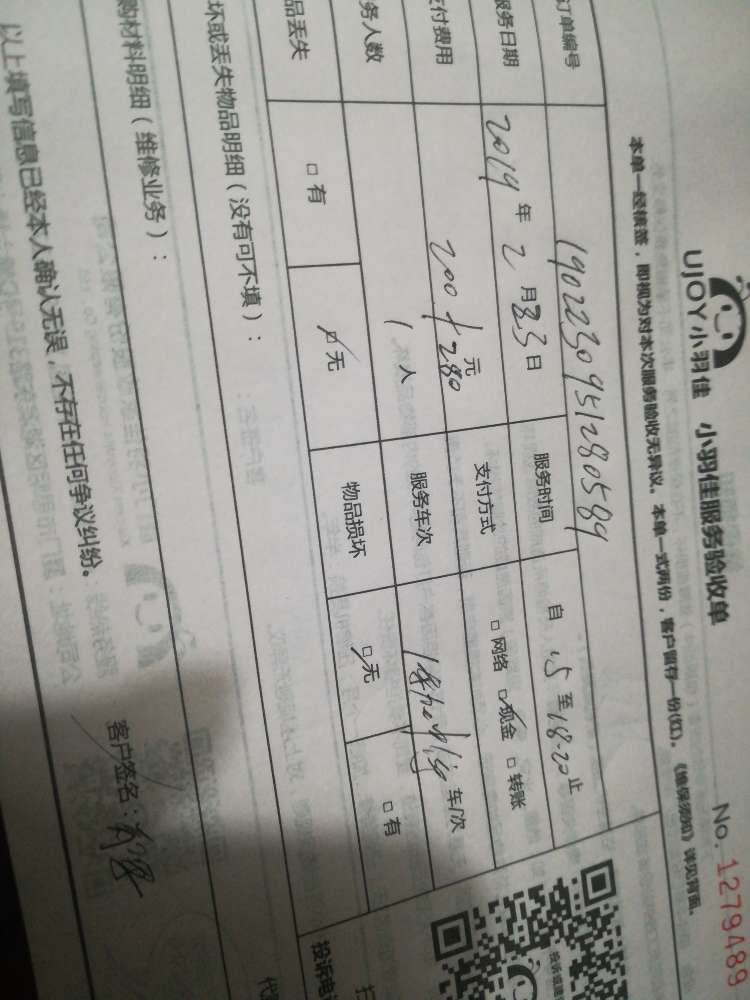 UJOY小羽佳 小羽佳服务验收单 No. 1279489
本单一经核签，即视为对本次服务验收无异议。本单一式两份，客户留存一份(红)。《维保须知》详见背面。
订单编号 1902230951280589
服务日期 2019年2月23日 服务时间 自15至18:20止
支付费用 200+280元 支付方式 □网络 ☑现金 □转账
务人数 1人 服务车次 车/次
品丢失 □有 ☑无 物品损坏 ☑无 □有
坏或丢失物品明细（没有可不填）：
购材料明细（维修业务）：
以上填写信息已经本人确认无误，不存在任何争议纠纷。
客户签名：
投诉电